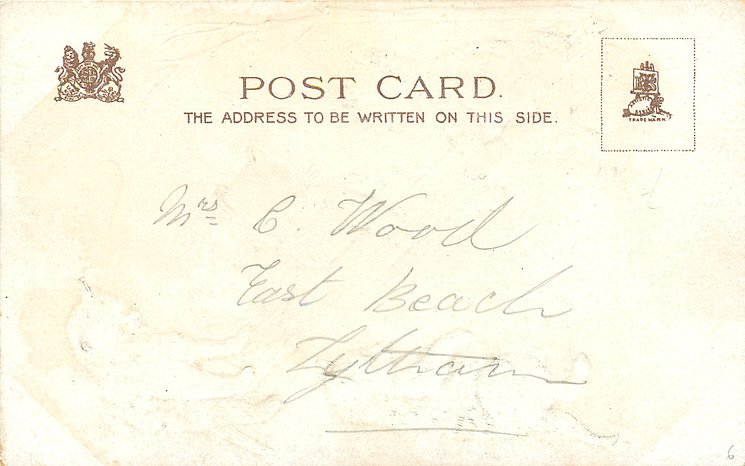 POST CARD.
THE ADDRESS TO BE WRITTEN ON THIS SIDE.
TRADE MARK
Mrs C. Wood
East Beach
Lytham
6